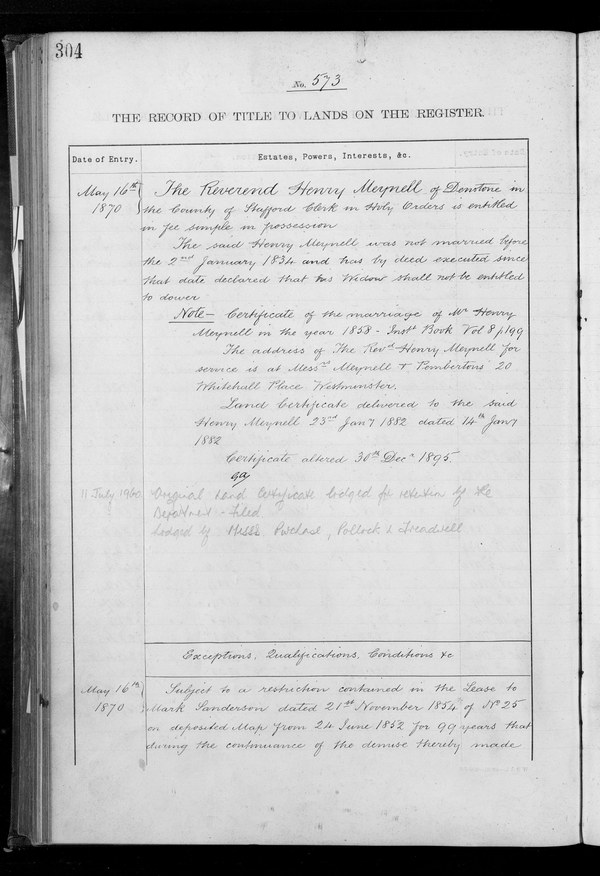 304
No. 573
THE RECORD OF TITLE TO LANDS ON THE REGISTER.
Date of Entry.
Estates, Powers, Interests, &c.
May 16th 1870
The Reverend Henry Meynell of Denstone in
the County of Stafford Clerk in Holy Orders is entitled
in fee simple in possession
The said Henry Meynell was not married before
the 2nd January 1834 and has by deed executed since
that date declared that his Widow shall not be entitled
to dower
Note – Certificate of the marriage of Mr Henry
Meynell in the year 1858 - Instt Book Vol 8 p 199
The address of The Revd Henry Meynell for
service is at Messrs Meynell & Pembertons 20
Whitehall Place Westminster.
Land Certificate delivered to the said
Henry Meynell 23rd Jany 1882 dated 14th Jany
1882
Certificate altered 30th Decr 1895.
11 July 1960
Original Land Certificate lodged for retention by the
Department - filed
Lodged by Messrs Purchase, Pollock & Treadwell
Exceptions, Qualifications, Conditions &c
May 16th 1870
Subject to a restriction contained in the Lease to
Mark Sanderson dated 21st November 1854 of No 25
on deposited Map from 24 June 1852 for 99 years that
during the continuance of the demise thereby made